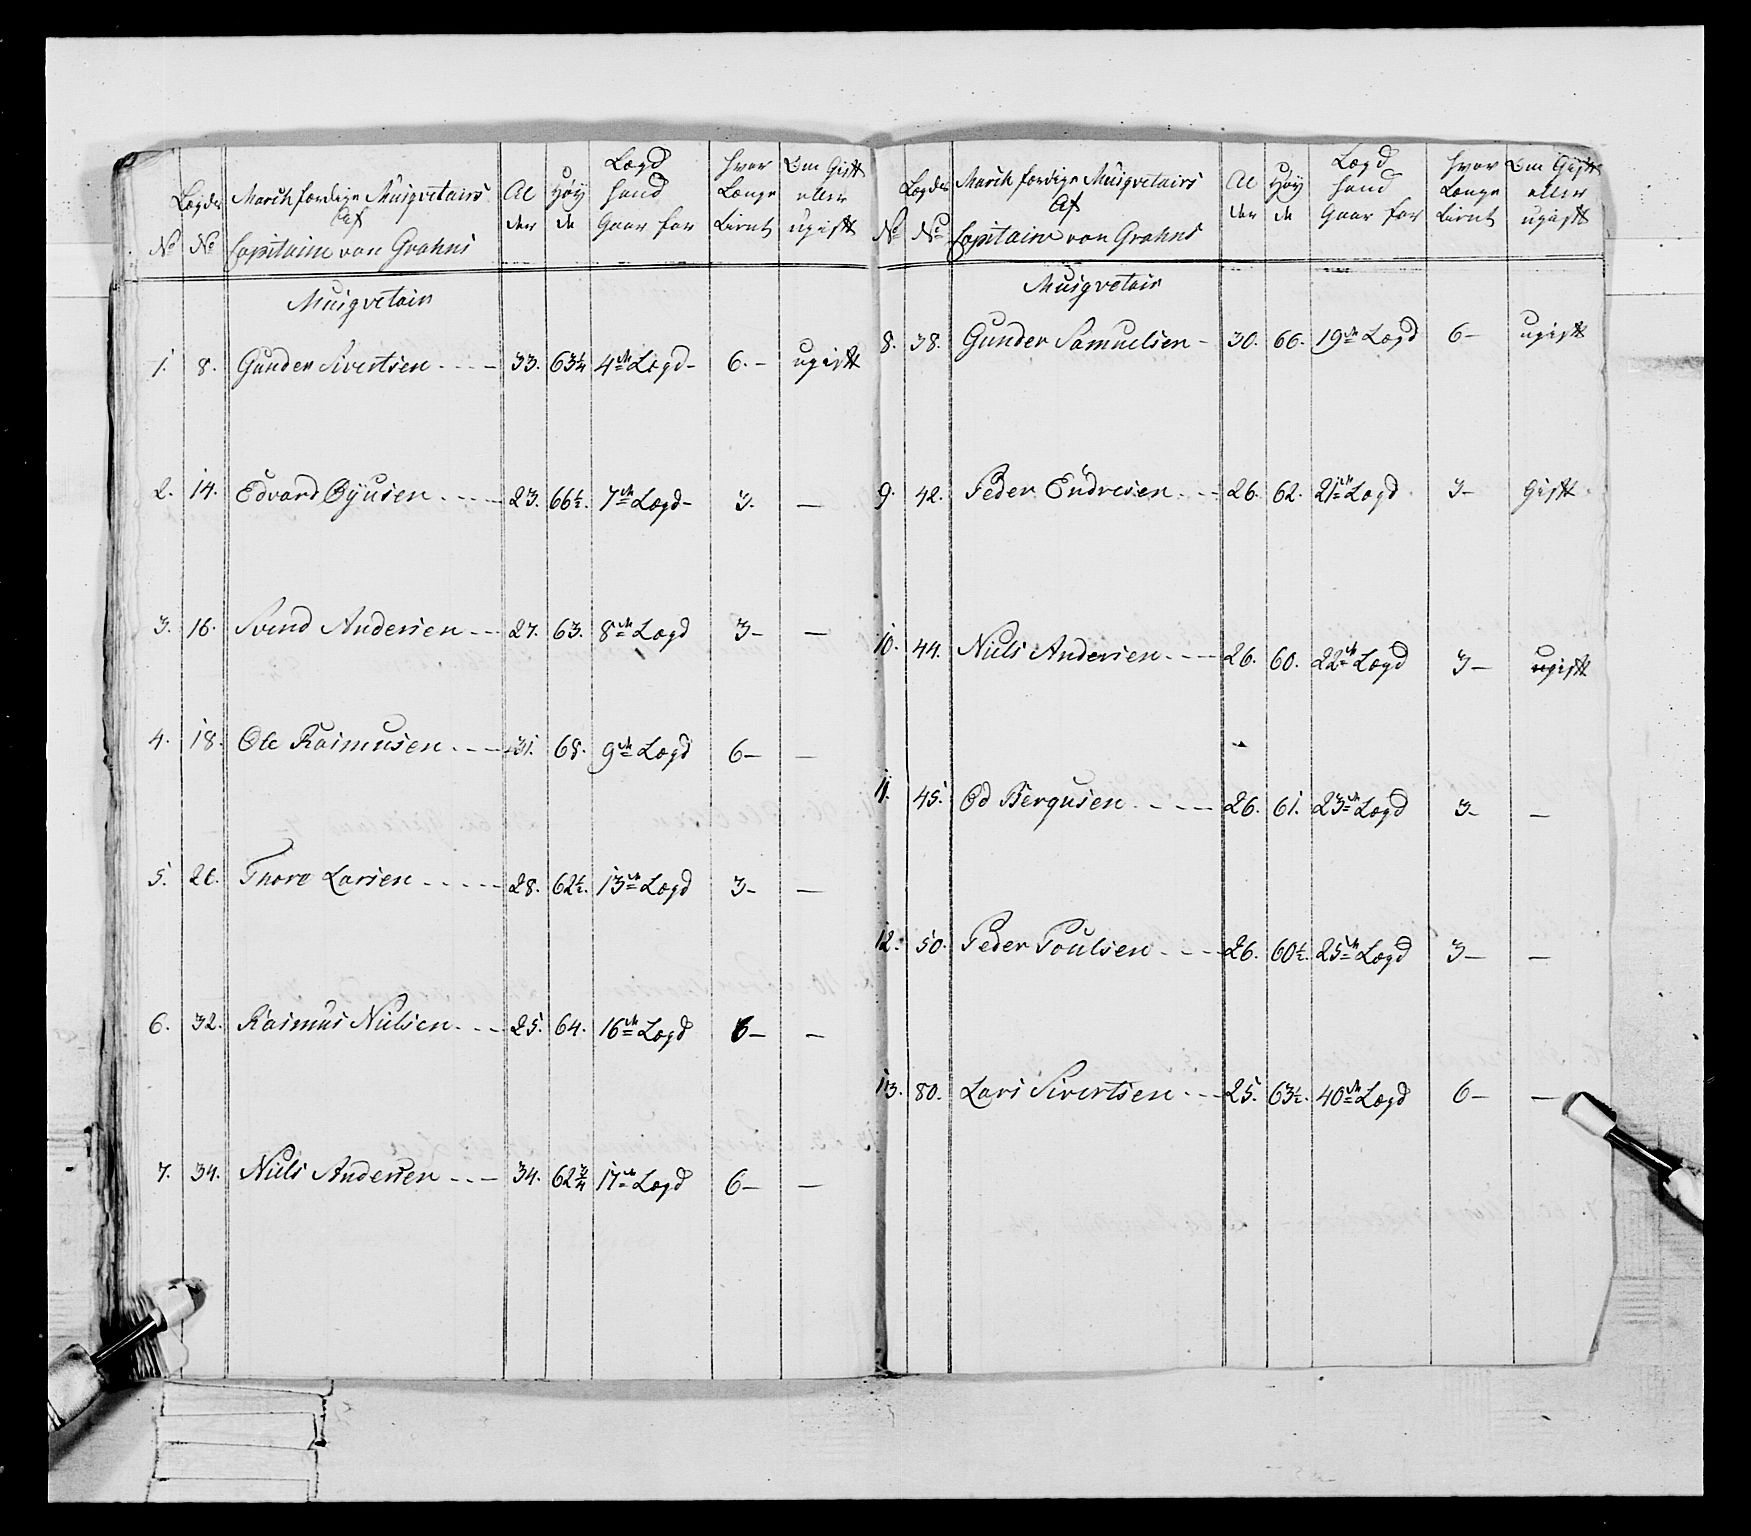 N° Lægdes N° March færdige Musqvetairs Af Capitaine von Grahns Alder Høyde Lægd hand Gaar for Hvor Længe tient Om Gift eller ugift
Musqvetair
1. 8. Gunder Sivertsen 33. 63¼ 4de Lægd 6. ugift
2. 14. Edvard Øyusen 23. 66½. 7de Lægd 3. —
3. 16. Svend Andersen 27. 63. 8de Lægd 3 —
4. 18. Ole Rasmusen 31. 68. 9de Lægd 6 —
5. 26. Thore Larsen 28. 62½. 13de Lægd 3 —
6. 32. Rasmus Nielsen 25. 64. 16de Lægd 6 —
7. 34. Niels Andersen 34. 62¾ 17de Lægd 6 —
N° Lægdes N° March færdige Musqvetairs Af Capitaine von Grahns Alder Høyde Lægd hand Gaar for Hvor Længe tient Om Gift eller ugift
Musqvetair
8. 38. Gunder Samuelsen 30. 66. 19de Lægd 6 ugift
9. 42. Peder Endresen 26. 62. 21de Lægd 3 Gift
10. 44. Niels Andersen 26. 60. 22de Lægd 3 ugift
11. 45. Od Bergusen 26. 61. 23de Lægd 3 —
12. 50. Peder Poulsen 26. 60½. 25de Lægd 3 —
13. 80. Lars Sivertsen 25. 63½. 40de Lægd 6 —